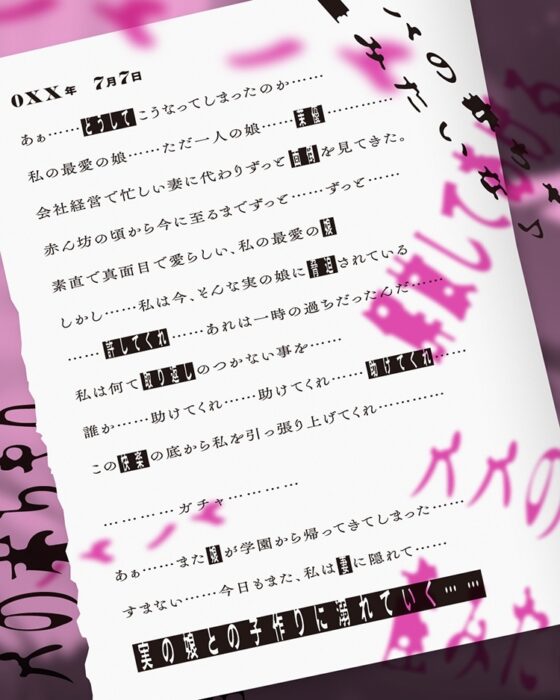 0XX年 7月7日
あぁ……どうしてこうなってしまったのか……
私の最愛の娘……ただ一人の娘……実娘…………
会社経営で忙しい妻に代わりずっと面倒を見てきた。
赤ん坊の頃から今に至るまでずっと……ずっと……
素直で真面目で愛らしい、私の最愛の娘
しかし……私は今、そんな実の娘に脅迫されている
……許してくれ……あれは一時の過ちだったんだ……
私は何て取り返しのつかない事を……
誰か……助けてくれ……助けてくれ……助けてくれ……
この快楽の底から私を引っ張り上げてくれ…………
…………ガチャ…………
あぁ……また娘が学園から帰ってきてしまった……
すまない……今日もまた、私は妻に隠れて……
実の娘との子作りに溺れていく……